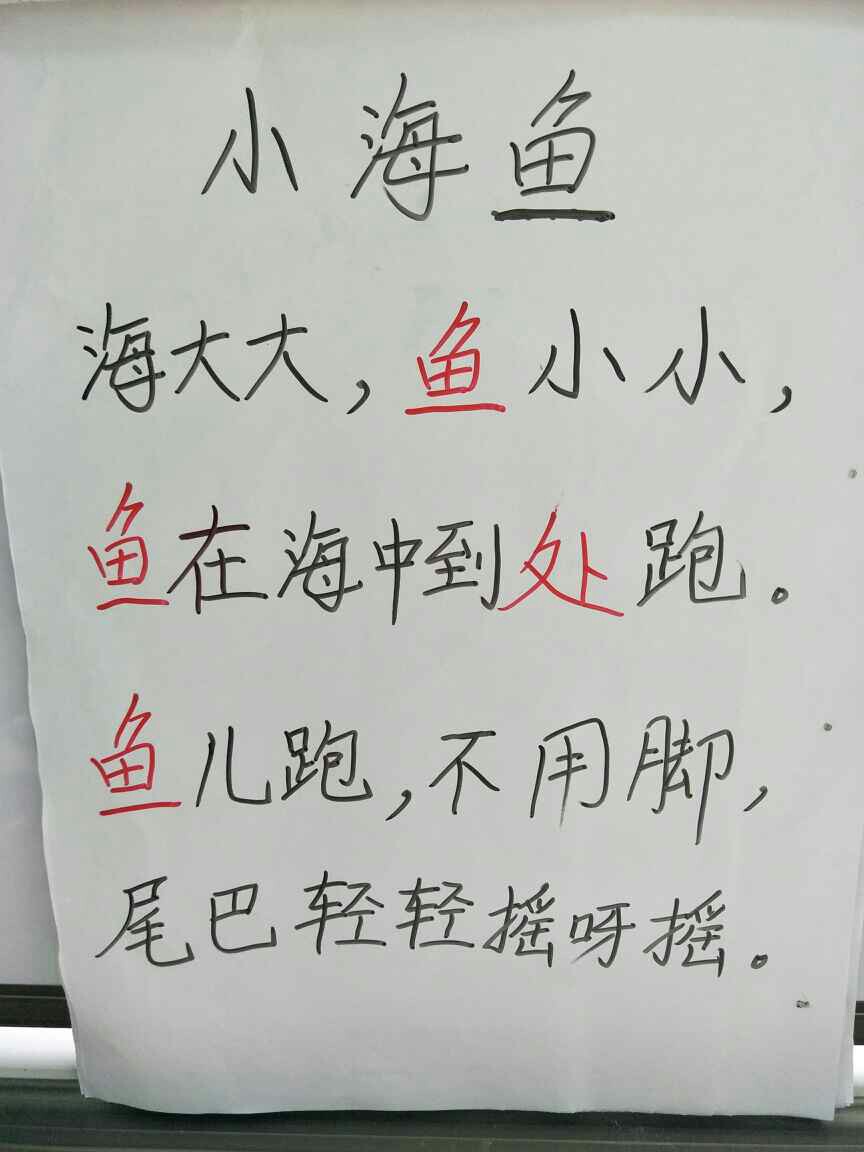 小海鱼
海大大,鱼小小,
鱼在海中到处跑。
鱼儿跑,不用脚,
尾巴轻轻摇呀摇。